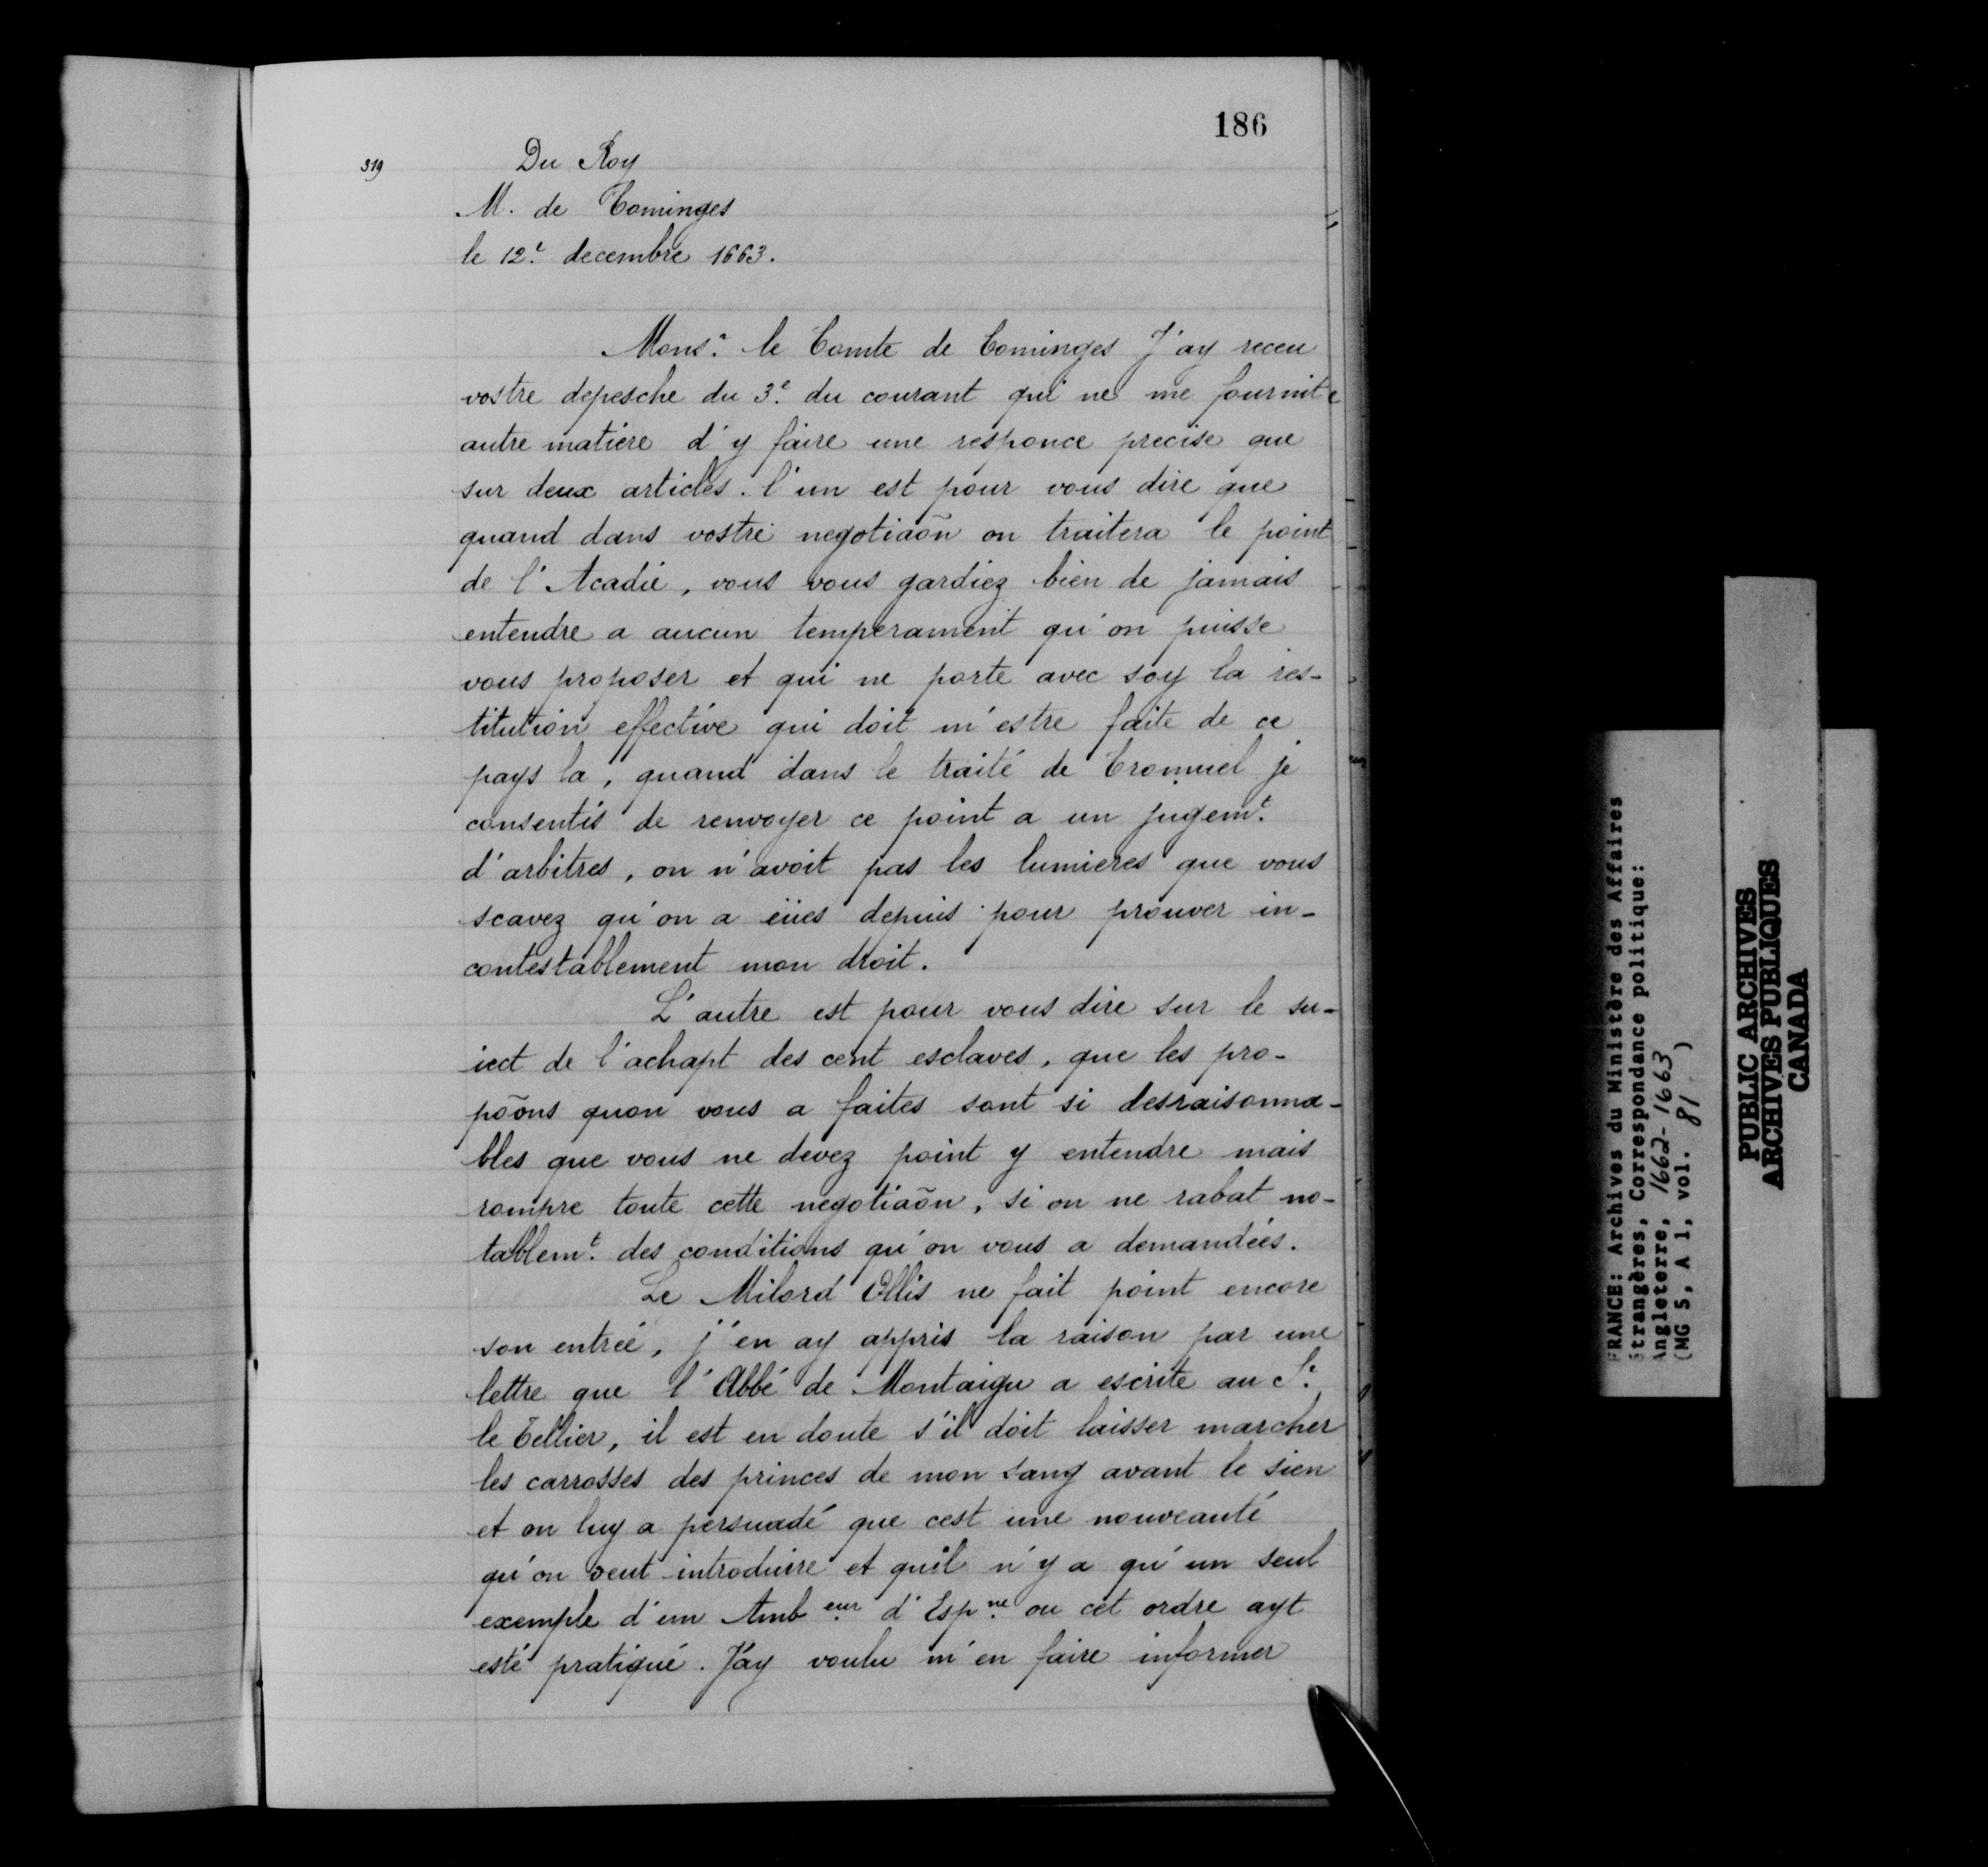 186
319
Du Roy
M. de Cominges
le 12.e decembre 1663.
Mons.r le Comte de Cominges J'ay receu
vostre depesche du 3.e du courant qui ne me fournit
autre matiére d'y faire une responce precise que
sur deux articles. l'un est pour vous dire que
quand dans vostre negotiaõn on traitera le point
de l'Acadie, vous vous gardiez bien de jamais
entendre a aucun temperament qu'on puisse
vous proposer et qui ne porte avec soy la res-
titution effective qui doit m'estre faite de ce
pays la, quand dans le traité de Cromuel je
consentis de renvoyer ce point a un jugem.t
d'arbitres, on n'avoit pas les lumieres que vous
scavez qu'on a eües depuis pour prouver in-
contestablement mon droit.
L'autre est pour vous dire sur le su-
iect de l'achapt des cent esclaves, que les pro-
poõns quon vous a faites sont si desraisonna-
bles que vous ne devez point y entendre mais
rompre toute cette negotiaõn, si on ne rabat no-
tablem.t des conditions qu'on vous a demandées.
Le Milord Ollis ne fait point encore
son entrée, j'en ay appris la raison par une
lettre que l'Abbé de Montaigu a escrite au S.r
le Tellier, il est en doute s'il doit laisser marcher
les carrosses des princes de mon sang avant le sien
et on luy a persuadé que cest une nouveauté
qu'on veut introduire et quil n'y a qu'un seul
exemple d'un Amb.eur d'Esp.ne ou cet ordre ayt
esté pratiqué. J'ay voulu m'en faire informer
FRANCE: Archives du Ministère des Affaires
Étrangères, Correspondance politique:
Angleterre, 1662-1663
(MG 5, A 1, vol. 81 )
PUBLIC ARCHIVES
ARCHIVES PUBLIQUES
CANADA